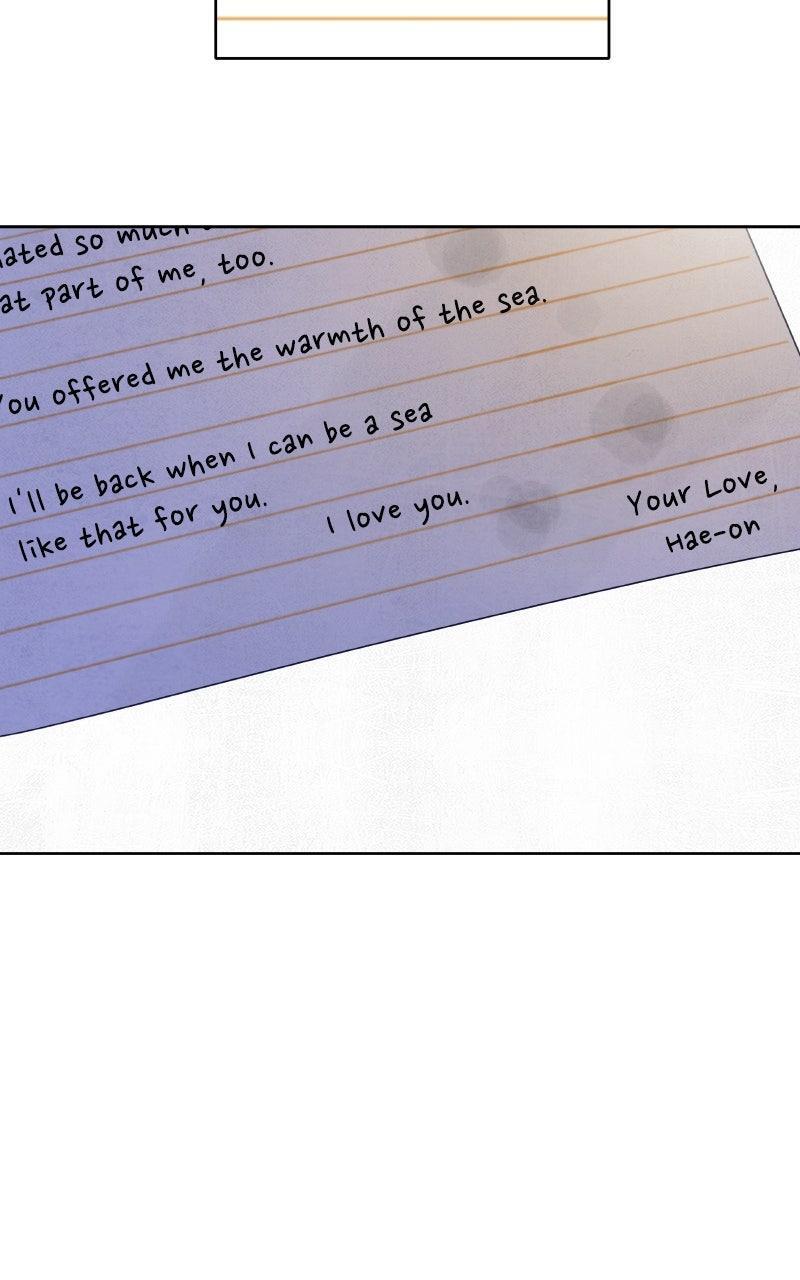 so much
part of me, too.
You offered me the warmth of the sea.
I'll be back when I can be a sea
like that for you.
I love you.
Your Love,
Hae-on